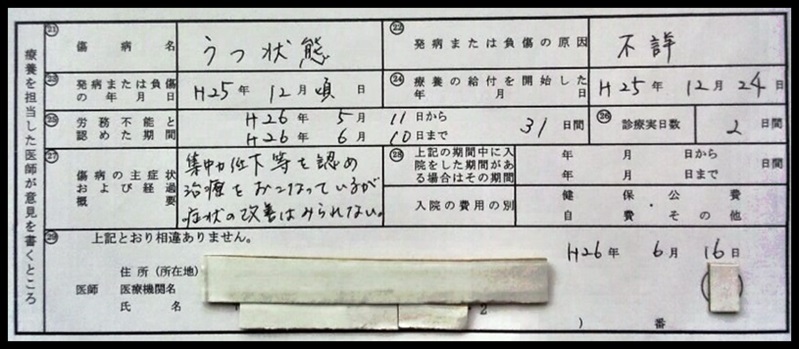 療養を担当した医師が意見を書くところ
㉑ 傷病名 うつ状態 ㉒ 発病または負傷の原因 不詳
㉓ 発病または負傷の年月日 H25年 12月頃 日 ㉔ 療養の給付を開始した年月日 H25年 12月 24日
㉕ 労務不能と認めた期間 H26年 5月 11日から
H26年 6月 10日まで 31日間 ㉖ 診療実日数 2日間
㉗ 傷病の主症状および経過概要
集中力低下等を認め
治療をおこなっているが
症状の改善はみられない。
㉘ 上記の期間中に入院をした期間がある場合はその期間
年 月 日から
年 月 日まで 日間
入院の費用の別
健保・公費
自費・その他
㉙ 上記とおり相違ありません。
H26年 6月 16日
住所(所在地)
医師 医療機関名
氏名
2
) 番